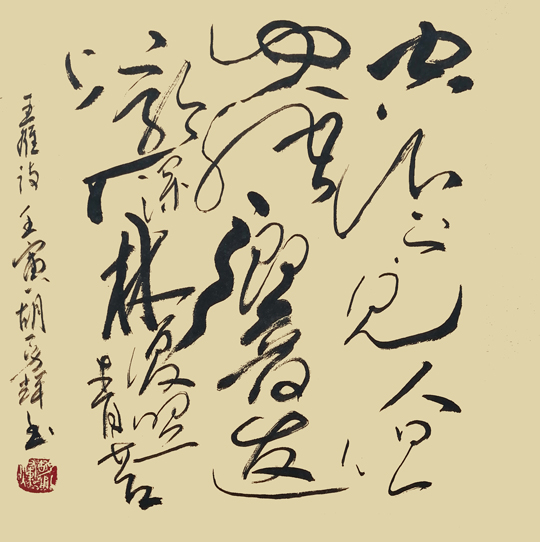 空山不見人但
聞人語響返
景入深林復照青苔
上
王維诗 壬寅 胡
书